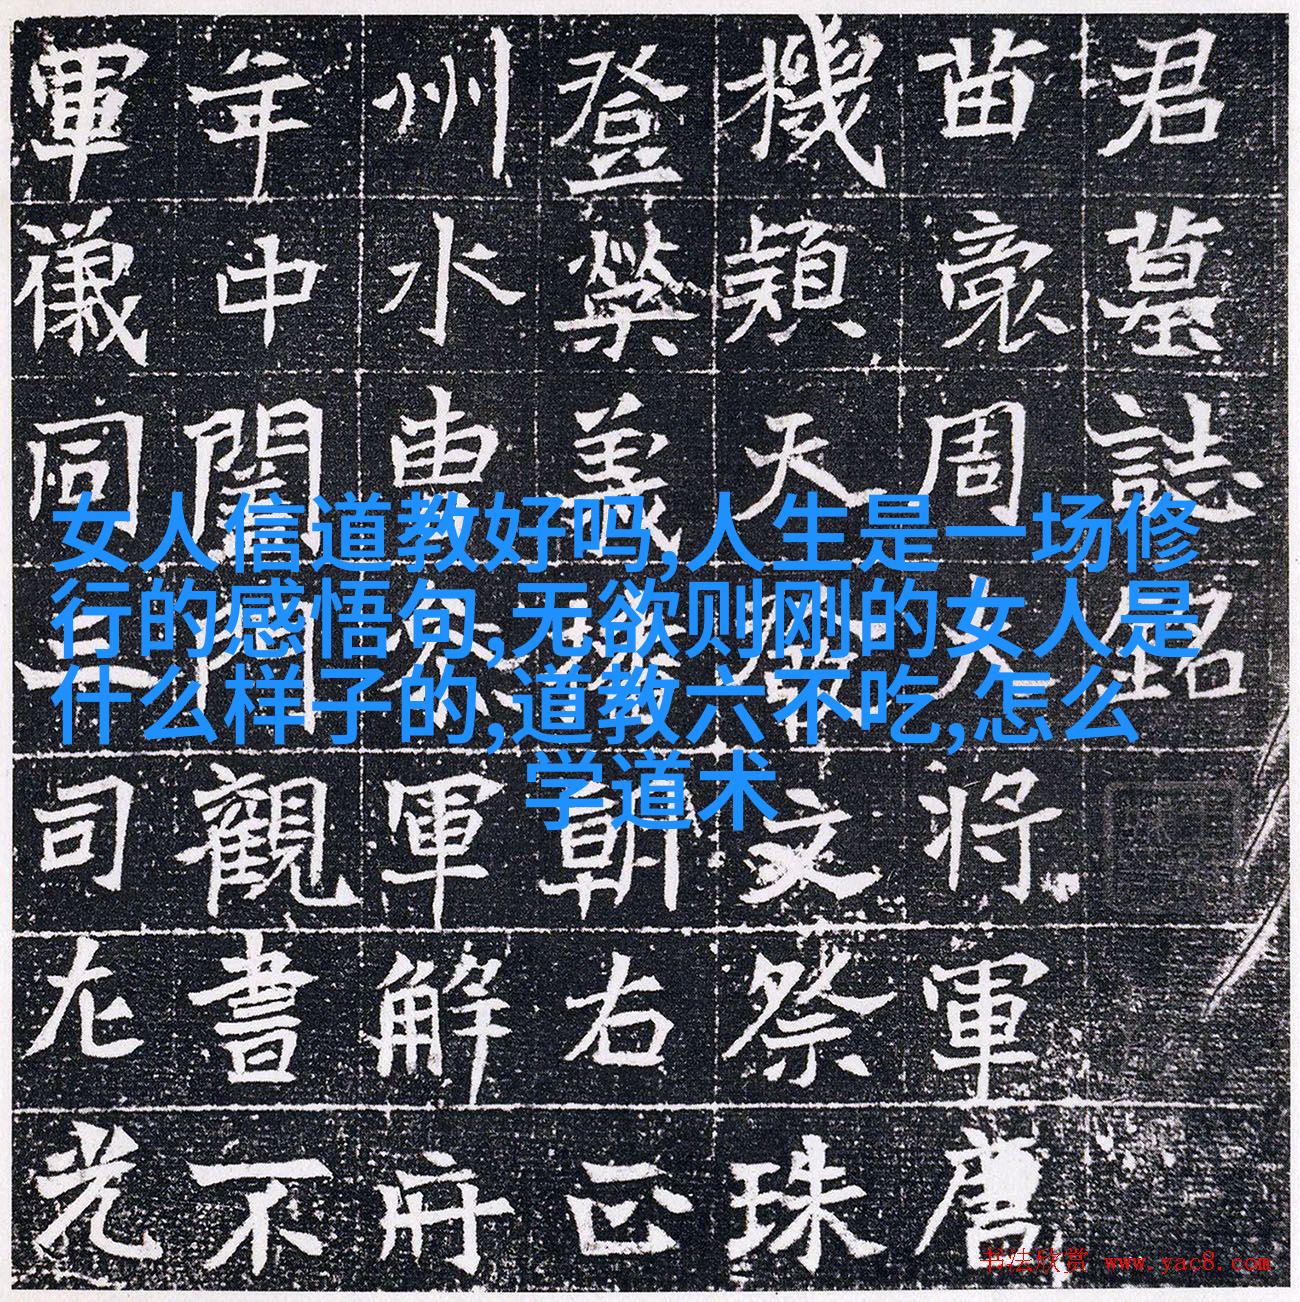 君墓誌銘
苗裔周大将軍唐
機穎天文祭珠
登榮義朝右正
州水曹参軍解
年中闇觀書不
軍儀同三司左光
女人信道教好吗,人生是一场修
行的感悟句,无欲则刚的女人是
什么样子的,道教六不吃,怎么
学道术
书法欣赏 www.yac8.com